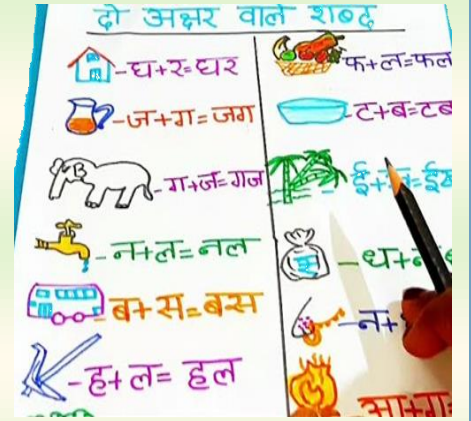 दो अक्षर वाले शब्द
-घ+र=घर
-ज+ग=जग
-ग+ज=गज
-न+ल=नल
-ब+स=बस
-ह+ल=हल
फ+ल=फल
-ट+ब=टब
-ई+
-ध+
-न+
-आ+ग=